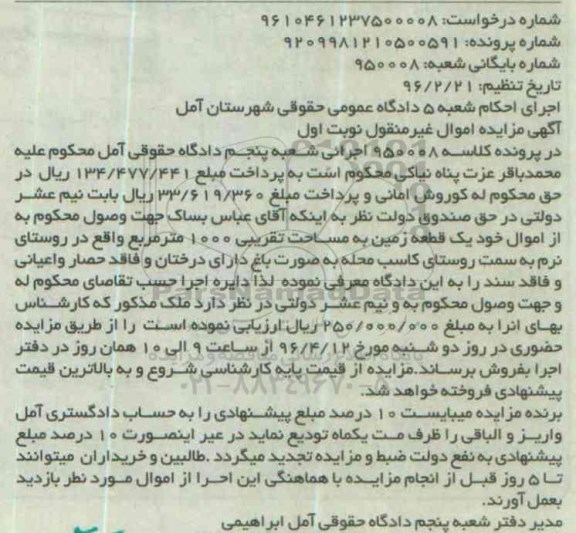 شماره درخواست: ۹۶۱۰۴۶۱۲۳۷۵۰۰۰۰۸
شماره پرونده: ۹۲۰۹۹۸۱۲۱۰۵۰۰۵۹۱
شماره بایگانی شعبه: ۹۵۰۰۰۸
تاریخ تنظیم: ۹۶/۲/۲۱
اجرای احکام شعبه ۵ دادگاه عمومی حقوقی شهرستان آمل
آگهی مزایده اموال غیرمنقول نوبت اول
در پرونده کلاسه ۹۵۰۰۰۸ اجرائی شعبه پنجم دادگاه حقوقی آمل محکوم علیه
محمدباقر عزت پناه نیاکی محکوم است به پرداخت مبلغ ۱۳۴/۴۷۷/۴۴۱ ریال در
حق محکوم له کوروش امانی و پرداخت مبلغ ۳۳/۶۱۹/۳۶۰ ریال بابت نیم عشر
دولتی در حق صندوق دولت نظر به اینکه آقای عباس بساک جهت وصول محکوم به
از اموال خود یک قطعه زمین به مساحت تقریبی ۱۰۰۰ مترمربع واقع در روستای
نرم به سمت روستای کاسب محله به صورت باغ دارای درختان و فاقد حصار واعیانی
و فاقد سند را به این دادگاه معرفی نموده لذا دایره اجرا حسب تقاضای محکوم له
و جهت وصول محکوم به و نیم عشر دولتی در نظر دارد ملک مذکور که کارشناس
بهای انرا به مبلغ ۲۵۰/۰۰۰/۰۰۰ ریال ارزیابی نموده است را از طریق مزایده
حضوری در روز دو شنبه مورخ ۹۶/۴/۱۲ از ساعت ۹ الی ۱۰ همان روز در دفتر
اجرا بفروش برساند.مزایده از قیمت پایه کارشناسی شروع و به بالاترین قیمت
پیشنهادی فروخته خواهد شد.
برنده مزایده میبایست ۱۰ درصد مبلغ پیشنهادی را به حساب دادگستری آمل
واریز و الباقی را ظرف مت یکماه تودیع نماید در غیر اینصورت ۱۰ درصد مبلغ
پیشنهادی به نفع دولت ضبط و مزایده تجدید میگردد .طالبین و خریداران میتوانند
تا ۵ روز قبل از انجام مزایده با هماهنگی این اجرا از اموال مورد نظر بازدید
بعمل آورند.
مدیر دفتر شعبه پنجم دادگاه حقوقی آمل ابراهیمی